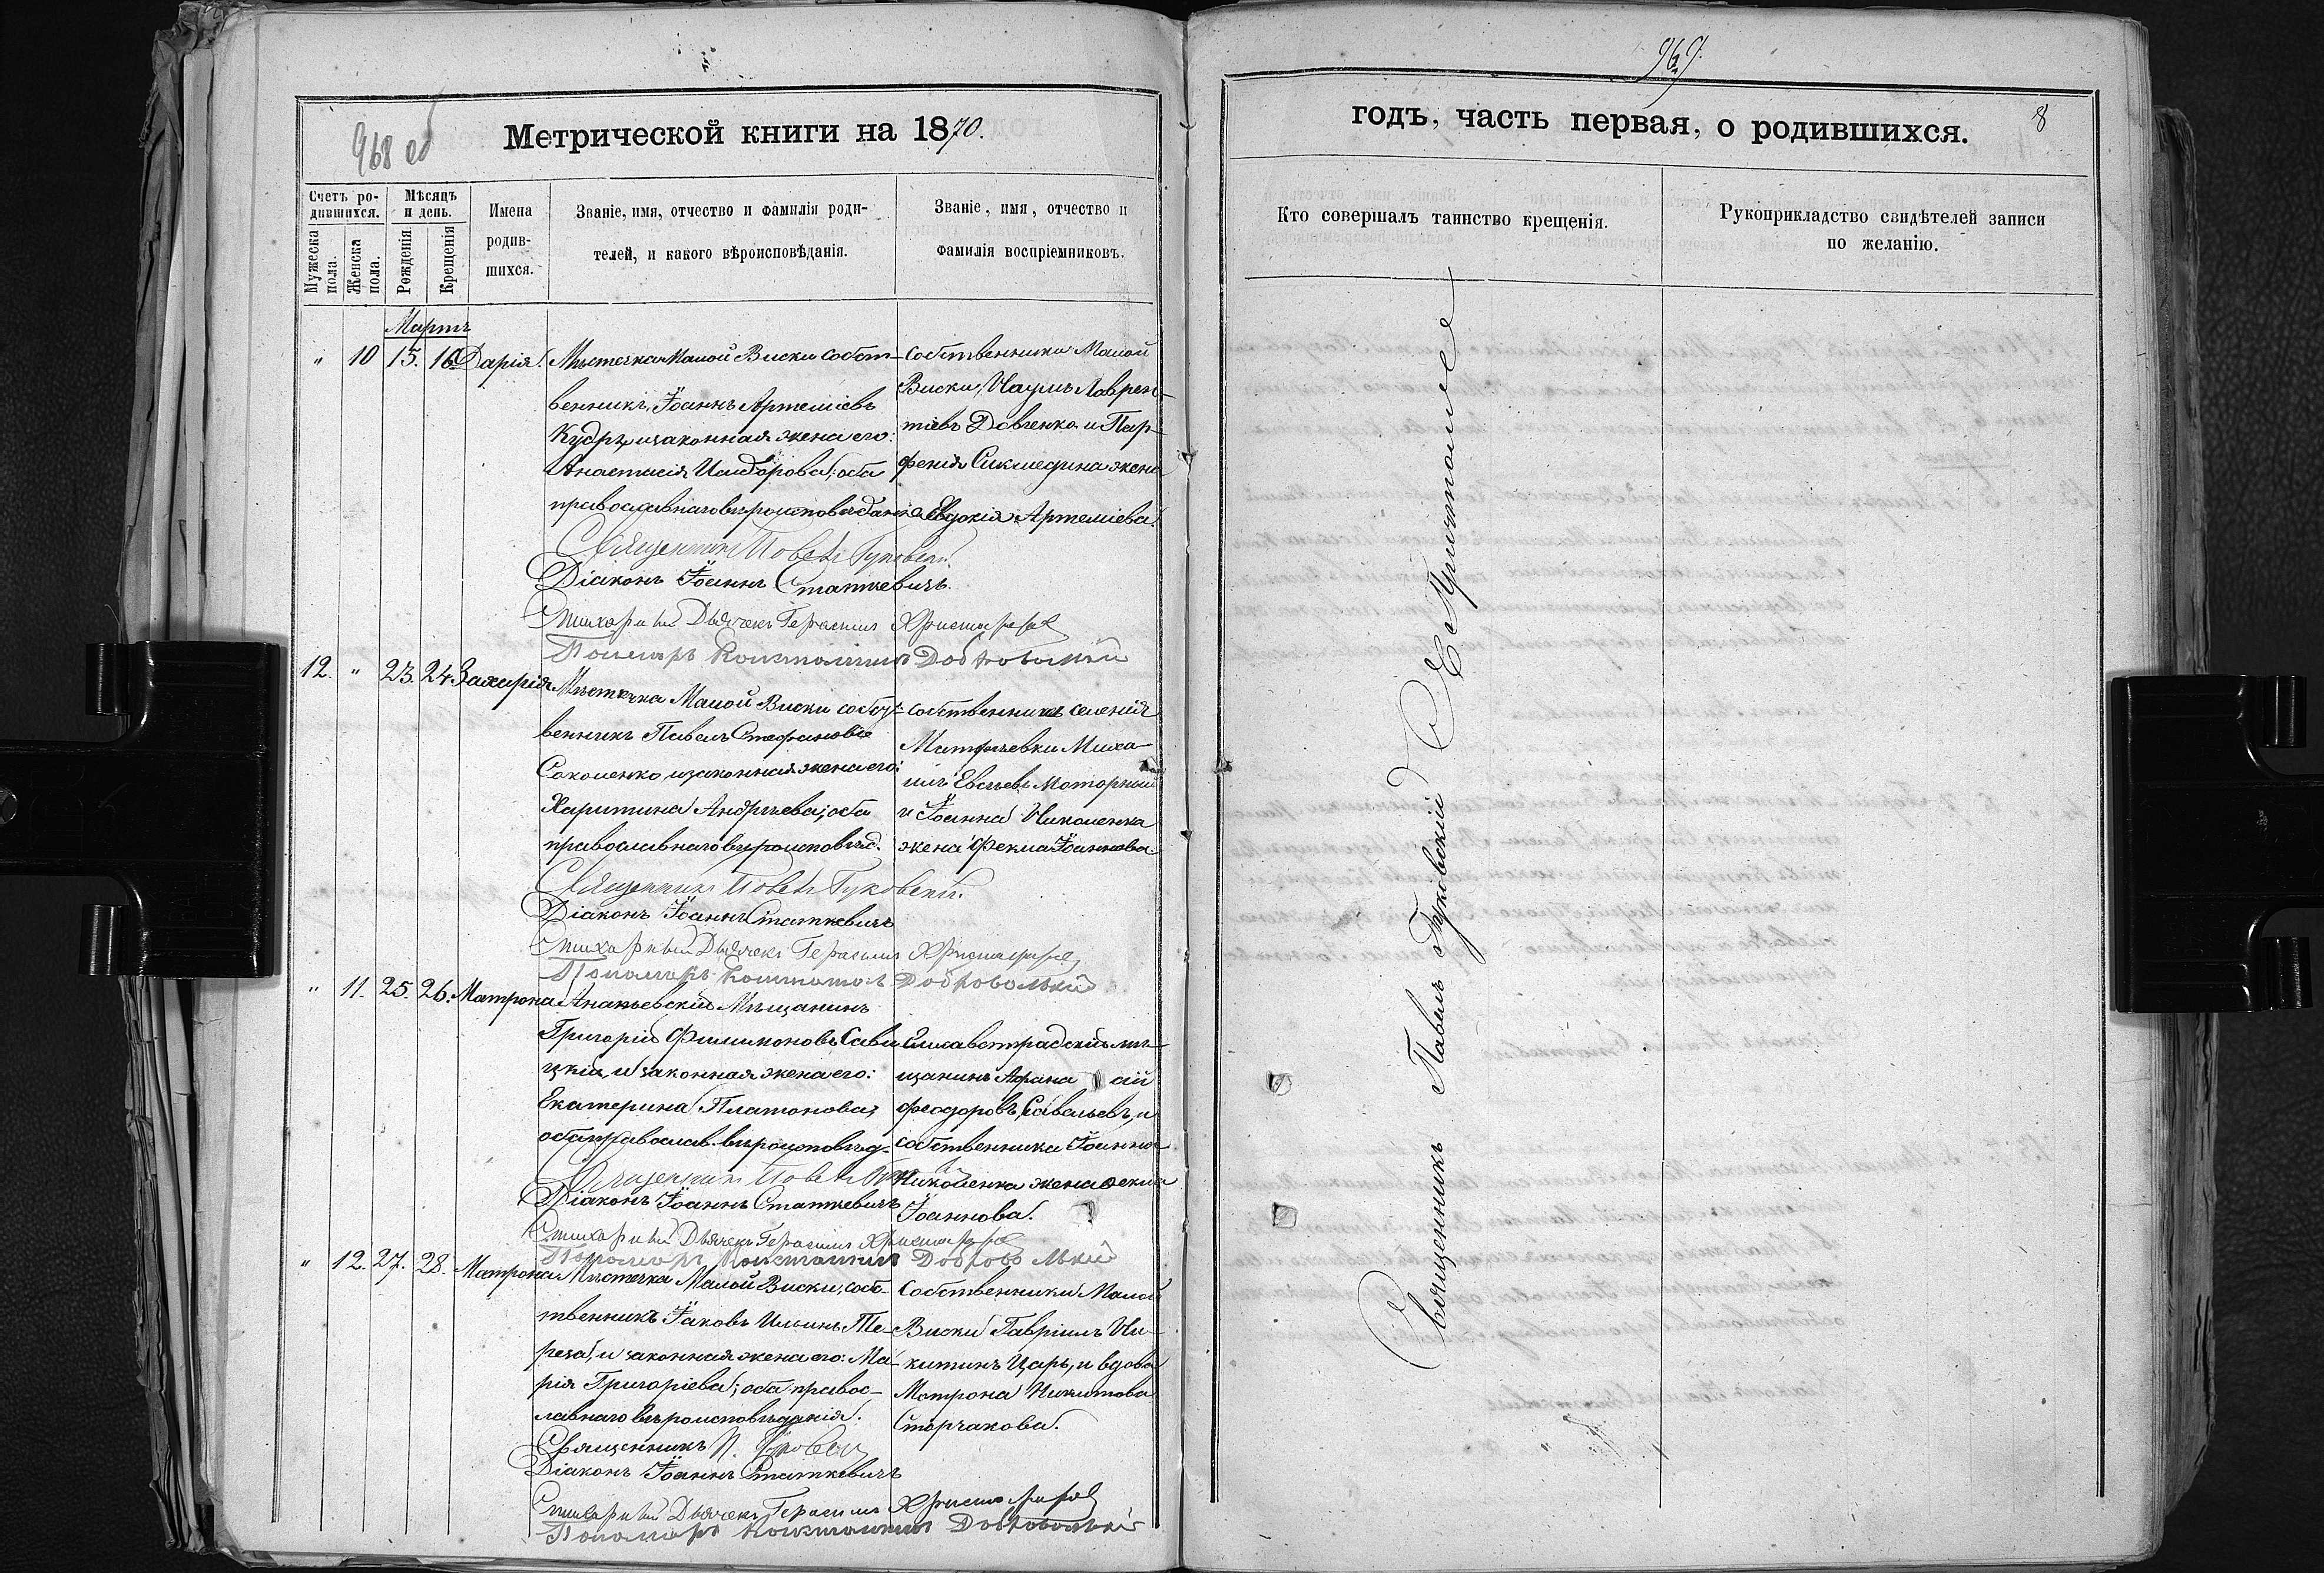 968 об
Метрической книги на 1870.
Счетъ ро-
дившихся.
Мѣсяцъ
и день.
Мужеска пола.
Женска пола.
Рожденія
Крещенія
Имена
родив-
шихся.
Званіе, имя, отчество и фамилія роди-
телей, и какого вѣроисповѣданія.
Званіе, имя, отчество и
фамилія воспріемниковъ.
Мартъ
" 10 15. 16. Дарія.
Мѣстечка Малой Виски собст-
венникъ, Іоаннъ Артеміевъ
Кудръ, и законная жена его:
Анастасія Исидорова; оба
православнаго вѣроисповѣданія
собственники Малой
Виски, Наумъ Лаврен-
тіевъ Довженко и Пар-
фенія жена
Евдокія Артеміева.
Священникъ Павелъ Гуковскій.
Діаконъ Іоаннъ Статкевичъ.
Стихарный Дьячекъ Герасимъ Христофоровъ
Пономарь Константинъ Добровольскій
12. " 23. 24. Захарія
Мѣстечка Малой Виски собст-
венникъ Павелъ Стефановъ
Соколенко и законная жена его:
Харитина Андреева; оба
православнаго вѣроисповѣд.
собственникъ селенія
Матфѣевки Миха-
илъ Евсѣевъ Моторный
и Іоанна Николенка
жена Фекла Іоаннова.
Священникъ Павелъ Гуковскій.
Діаконъ Іоаннъ Статкевичъ
Стихарный Дьячекъ Герасимъ Христофоровъ
Пономарь Константинъ Добровольскій
" 11. 25. 26. Матрона
Ананьевскій Мѣщанинъ
Григорій Филимоновъ Сави-
цкій, и законная жена его:
Екатерина Платонова;
оба православ. вѣроисповѣд-
Елисаветрадскій мѣ-
щанинъ
Феодоровъ, Савельевъ, и
собственника Іоанна
Николенка жена Фекла
Іоаннова.
Священникъ Павелъ
Діаконъ Іоаннъ Статкевичъ
Стихарный Дьячекъ Герасимъ Христофоровъ
Пономарь Константинъ Добровольскій
" 12. 27. 28. Матрона
Мѣстечка Малой Виски, собс-
твенникъ Іаковъ Ильинъ Те-
реза, и законная жена его: Ма-
рія Григоріева; оба правос-
лавнаго вѣроисповѣданія.
Собственники Малой
Виски Гавріилъ Ни-
китинъ Царь, и вдова
Матрона Никитова
Сторчакова.
Священникъ П. Гуковскій
Діаконъ Іоаннъ Статкевичъ
Стихарный Дьячекъ Герасимъ Христофоровъ
Пономарь Константинъ Добровольскій
969.
8
годъ, часть первая, о родившихся.
Кто совершалъ таинство крещенія.
Рукоприкладство свидѣтелей записи
по желанію.
Священникъ Павелъ Гуковскій С Причтомъ